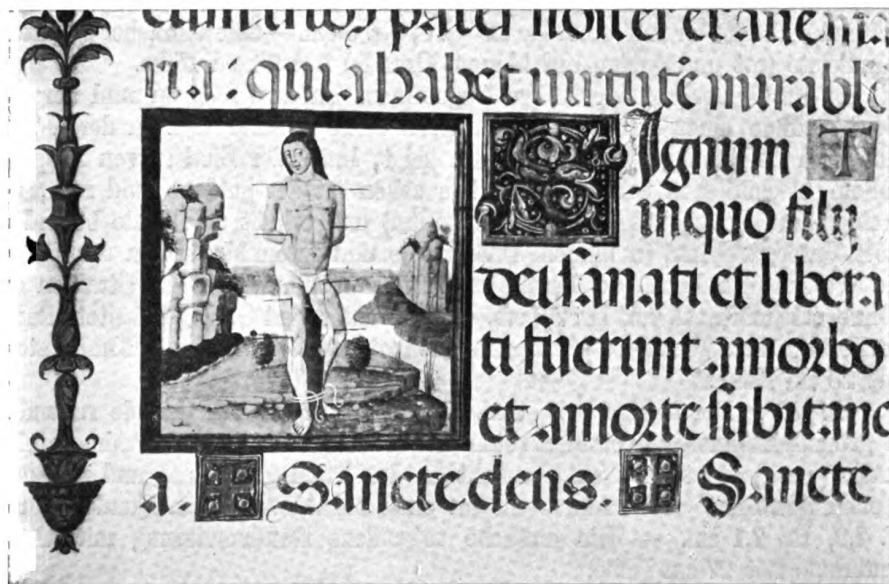 pater noster et aue ma
ria: quia habet uirtutē mirabile
SIgnum T
in quo filij
dei sanati et libera
ti fuerunt a morbo
et a morte subitane
a. Sancte deus. Sancte